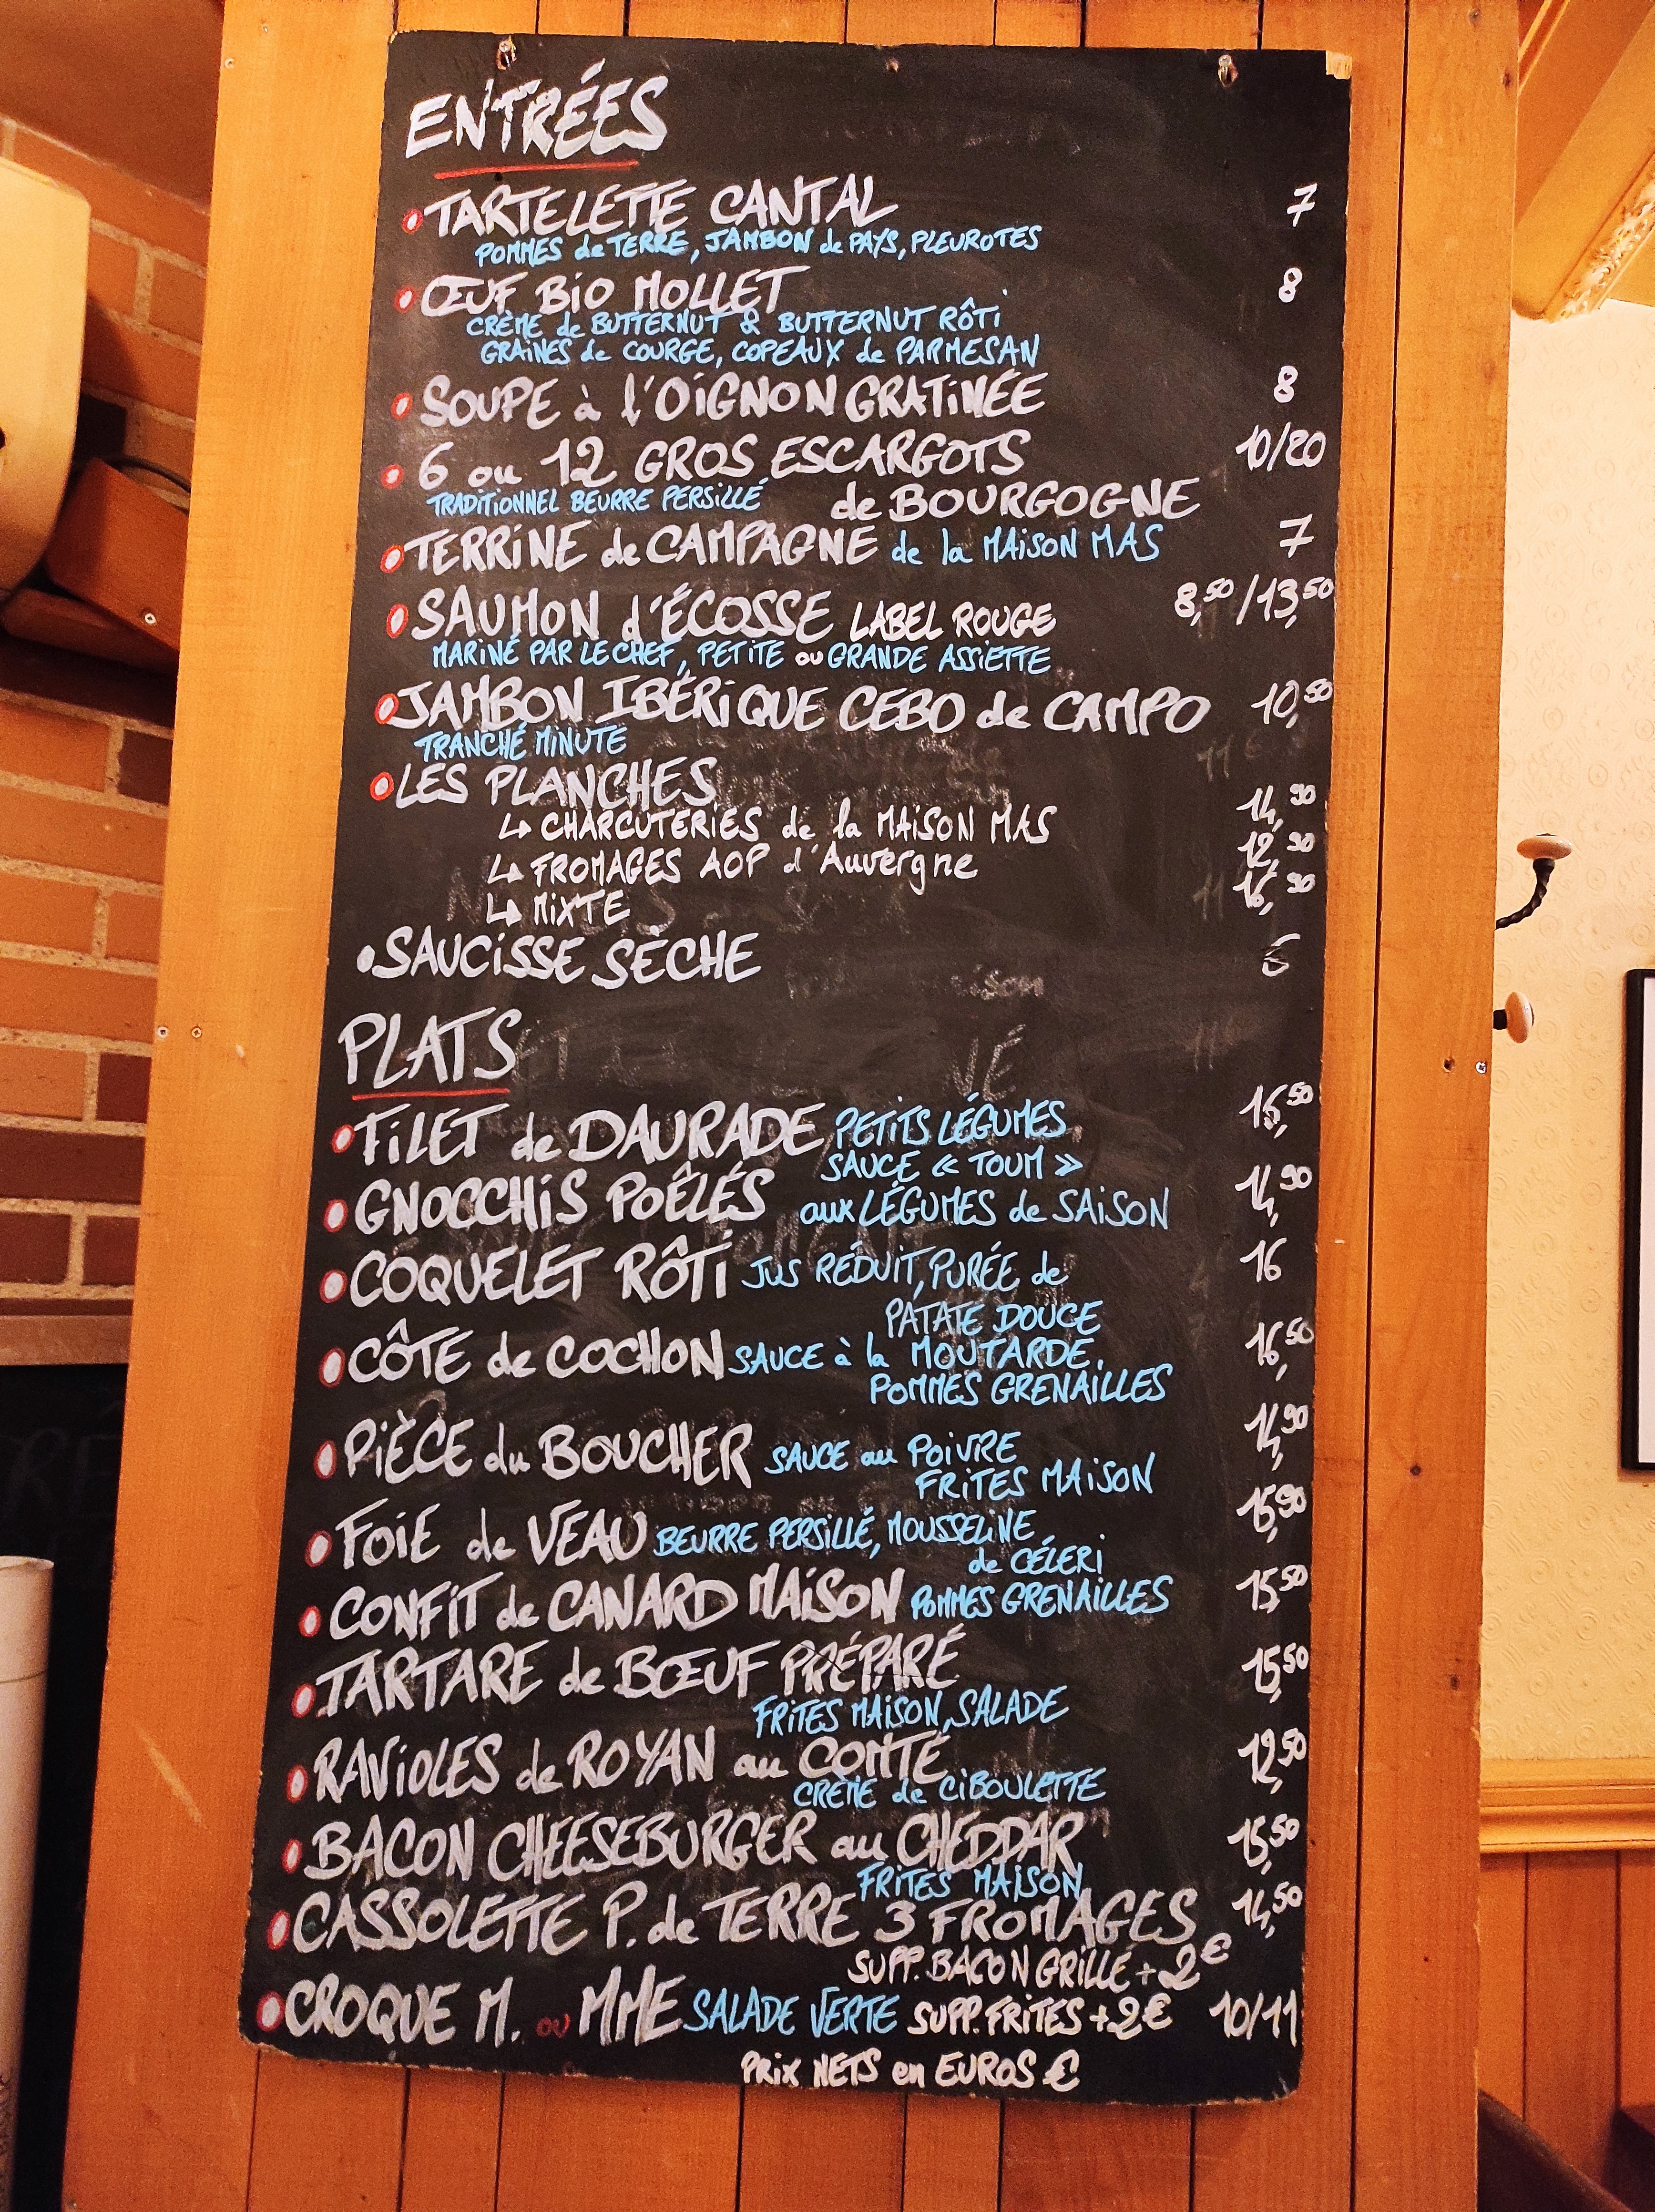 ENTRÉES
TARTELETTE CANTAL 7
POMMES de TERRE, JAMBON de PAYS, PLEUROTES
ŒUF BIO MOLLET 8
CRÈME de BUTTERNUT & BUTTERNUT RÔTI
GRAINES de COURGE, COPEAUX de PARMESAN
SOUPE à l'OIGNON GRATINÉE 8
6 ou 12 GROS ESCARGOTS 10/20
TRADITIONNEL BEURRE PERSILLÉ de BOURGOGNE
TERRINE de CAMPAGNE de la MAISON MAS 7
SAUMON d'ÉCOSSE LABEL ROUGE 8,50/13,50
MARINÉ PAR LE CHEF, PETITE ou GRANDE ASSIETTE
JAMBON IBÉRIQUE CEBO de CAMPO 10,50
TRANCHÉ MINUTE
LES PLANCHES
↳ CHARCUTERIES de la MAISON MAS 14,90
↳ FROMAGES AOP d'Auvergne 12,90
↳ MIXTE 16,90
SAUCISSE SÈCHE 6
PLATS
FILET de DAURADE PETITS LÉGUMES 16,50
SAUCE « TOUM »
GNOCCHIS POÊLÉS aux LÉGUMES de SAISON 14,90
COQUELET RÔTI JUS RÉDUIT, PURÉE de 16
PATATE DOUCE
CÔTE de COCHON SAUCE à la MOUTARDE, 16,50
POMMES GRENAILLES
PIÈCE du BOUCHER SAUCE au POIVRE 14,90
FRITES MAISON
FOIE de VEAU BEURRE PERSILLÉ, MOUSSELINE 15,90
de CÉLERI
CONFIT de CANARD MAISON POMMES GRENAILLES 15,50
TARTARE de BŒUF PRÉPARÉ 15,50
FRITES MAISON, SALADE
RAVIOLES de ROYAN au COMTÉ 12,50
CRÈME de CIBOULETTE
BACON CHEESEBURGER au CHEDDAR 15,50
FRITES MAISON
CASSOLETTE P. de TERRE 3 FROMAGES 14,50
SUPP. BACON GRILLÉ + 2€
CROQUE M. ou MME SALADE VERTE SUPP. FRITES +2€ 10/11
PRIX NETS en EUROS €